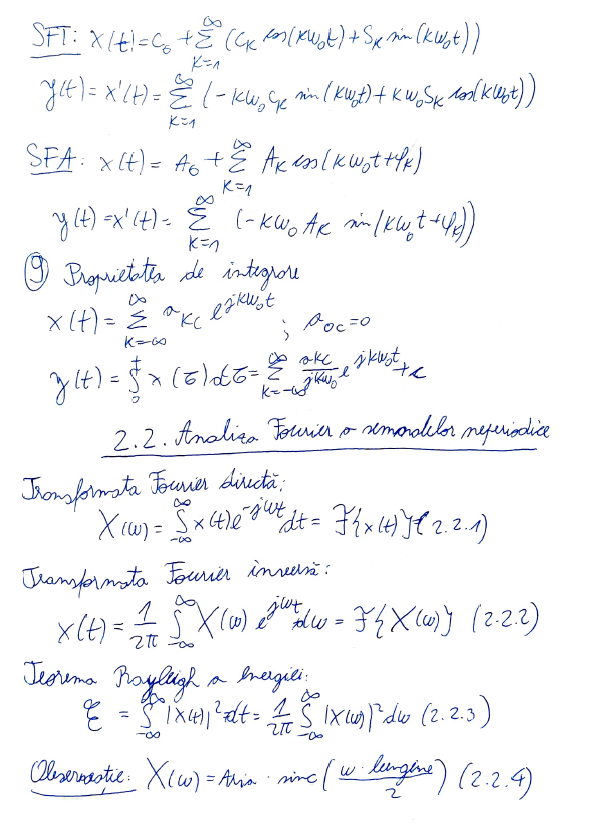 SFT: x(t)=C₀ + ∑_{K=1}^{∞} (C_K cos(Kω₀t)+S_K sin(Kω₀t))
y(t)=x'(t)= ∑_{K=1}^{∞} (-Kω₀C_K sin(Kω₀t)+Kω₀S_K cos(Kω₀t))
SFA: x(t)= A₀ + ∑_{K=1}^{∞} A_K cos(Kω₀t+φ_K)
y(t)=x'(t)= ∑_{K=1}^{∞} (-Kω₀ A_K sin(Kω₀t+φ_K))
⑨ Proprietatea de integrare
x(t)= ∑_{K=-∞}^{∞} a_{KC} e^{jKω₀t} ; a_{0C}=0
y(t)= ∫_0^t x(σ)dσ= ∑_{K=-∞}^{∞} a_{KC}/(jKω₀) e^{jKω₀t}+c
2.2. Analiza Fourier a semnalelor neperiodice
Transformata Fourier directă:
X(ω)= ∫_{-∞}^{∞} x(t)e^{-jωt}dt= F{x(t)} (2.2.1)
Transformata Fourier inversă:
x(t)= 1/2π ∫_{-∞}^{∞} X(ω) e^{jωt}dω= F{X(ω)} (2.2.2)
Teorema Rayleigh a energiei:
E = ∫_{-∞}^{∞} |x(t)|²dt= 1/2π ∫_{-∞}^{∞} |X(ω)|²dω (2.2.3)
Observație: X(ω)=Aria · sinc(ω·lungime/2) (2.2.4)